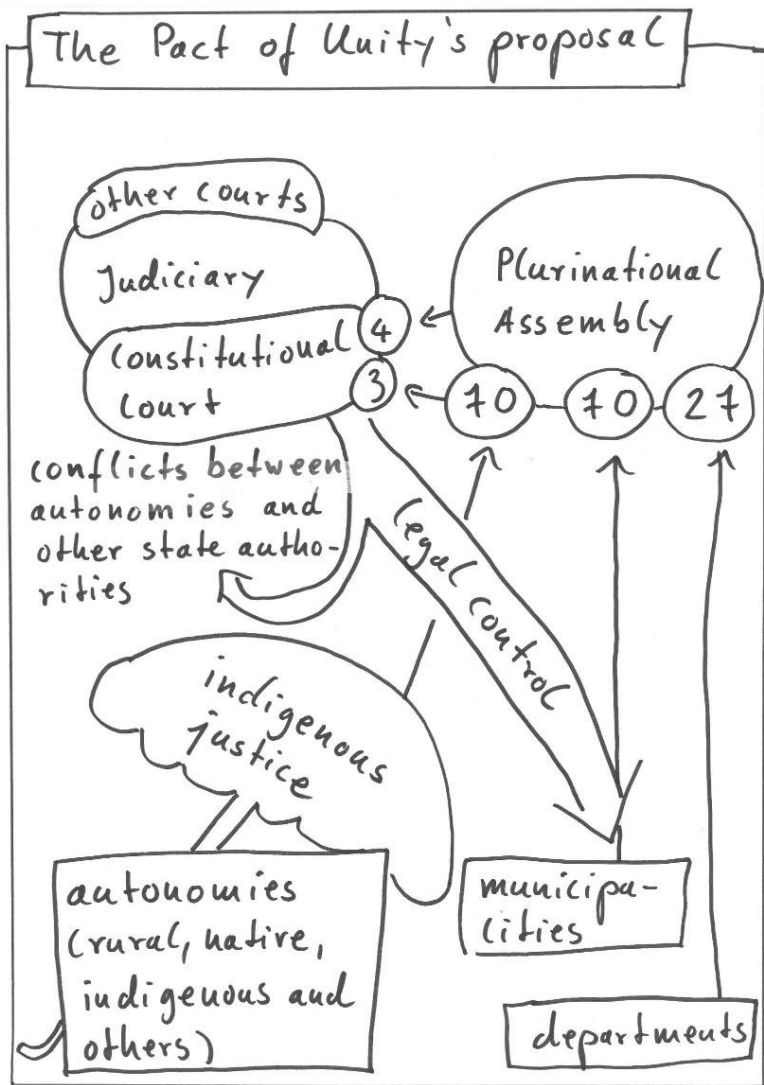 The Pact of Unity's proposal
other courts
Judiciary
Constitutional
Court
4
3
Plurinational
Assembly
70
70
27
conflicts between
autonomies and
other state autho-
rities
legal control
indigenous
justice
autonomies
(rural, native,
indigenous and
others)
municipa-
lities
departments